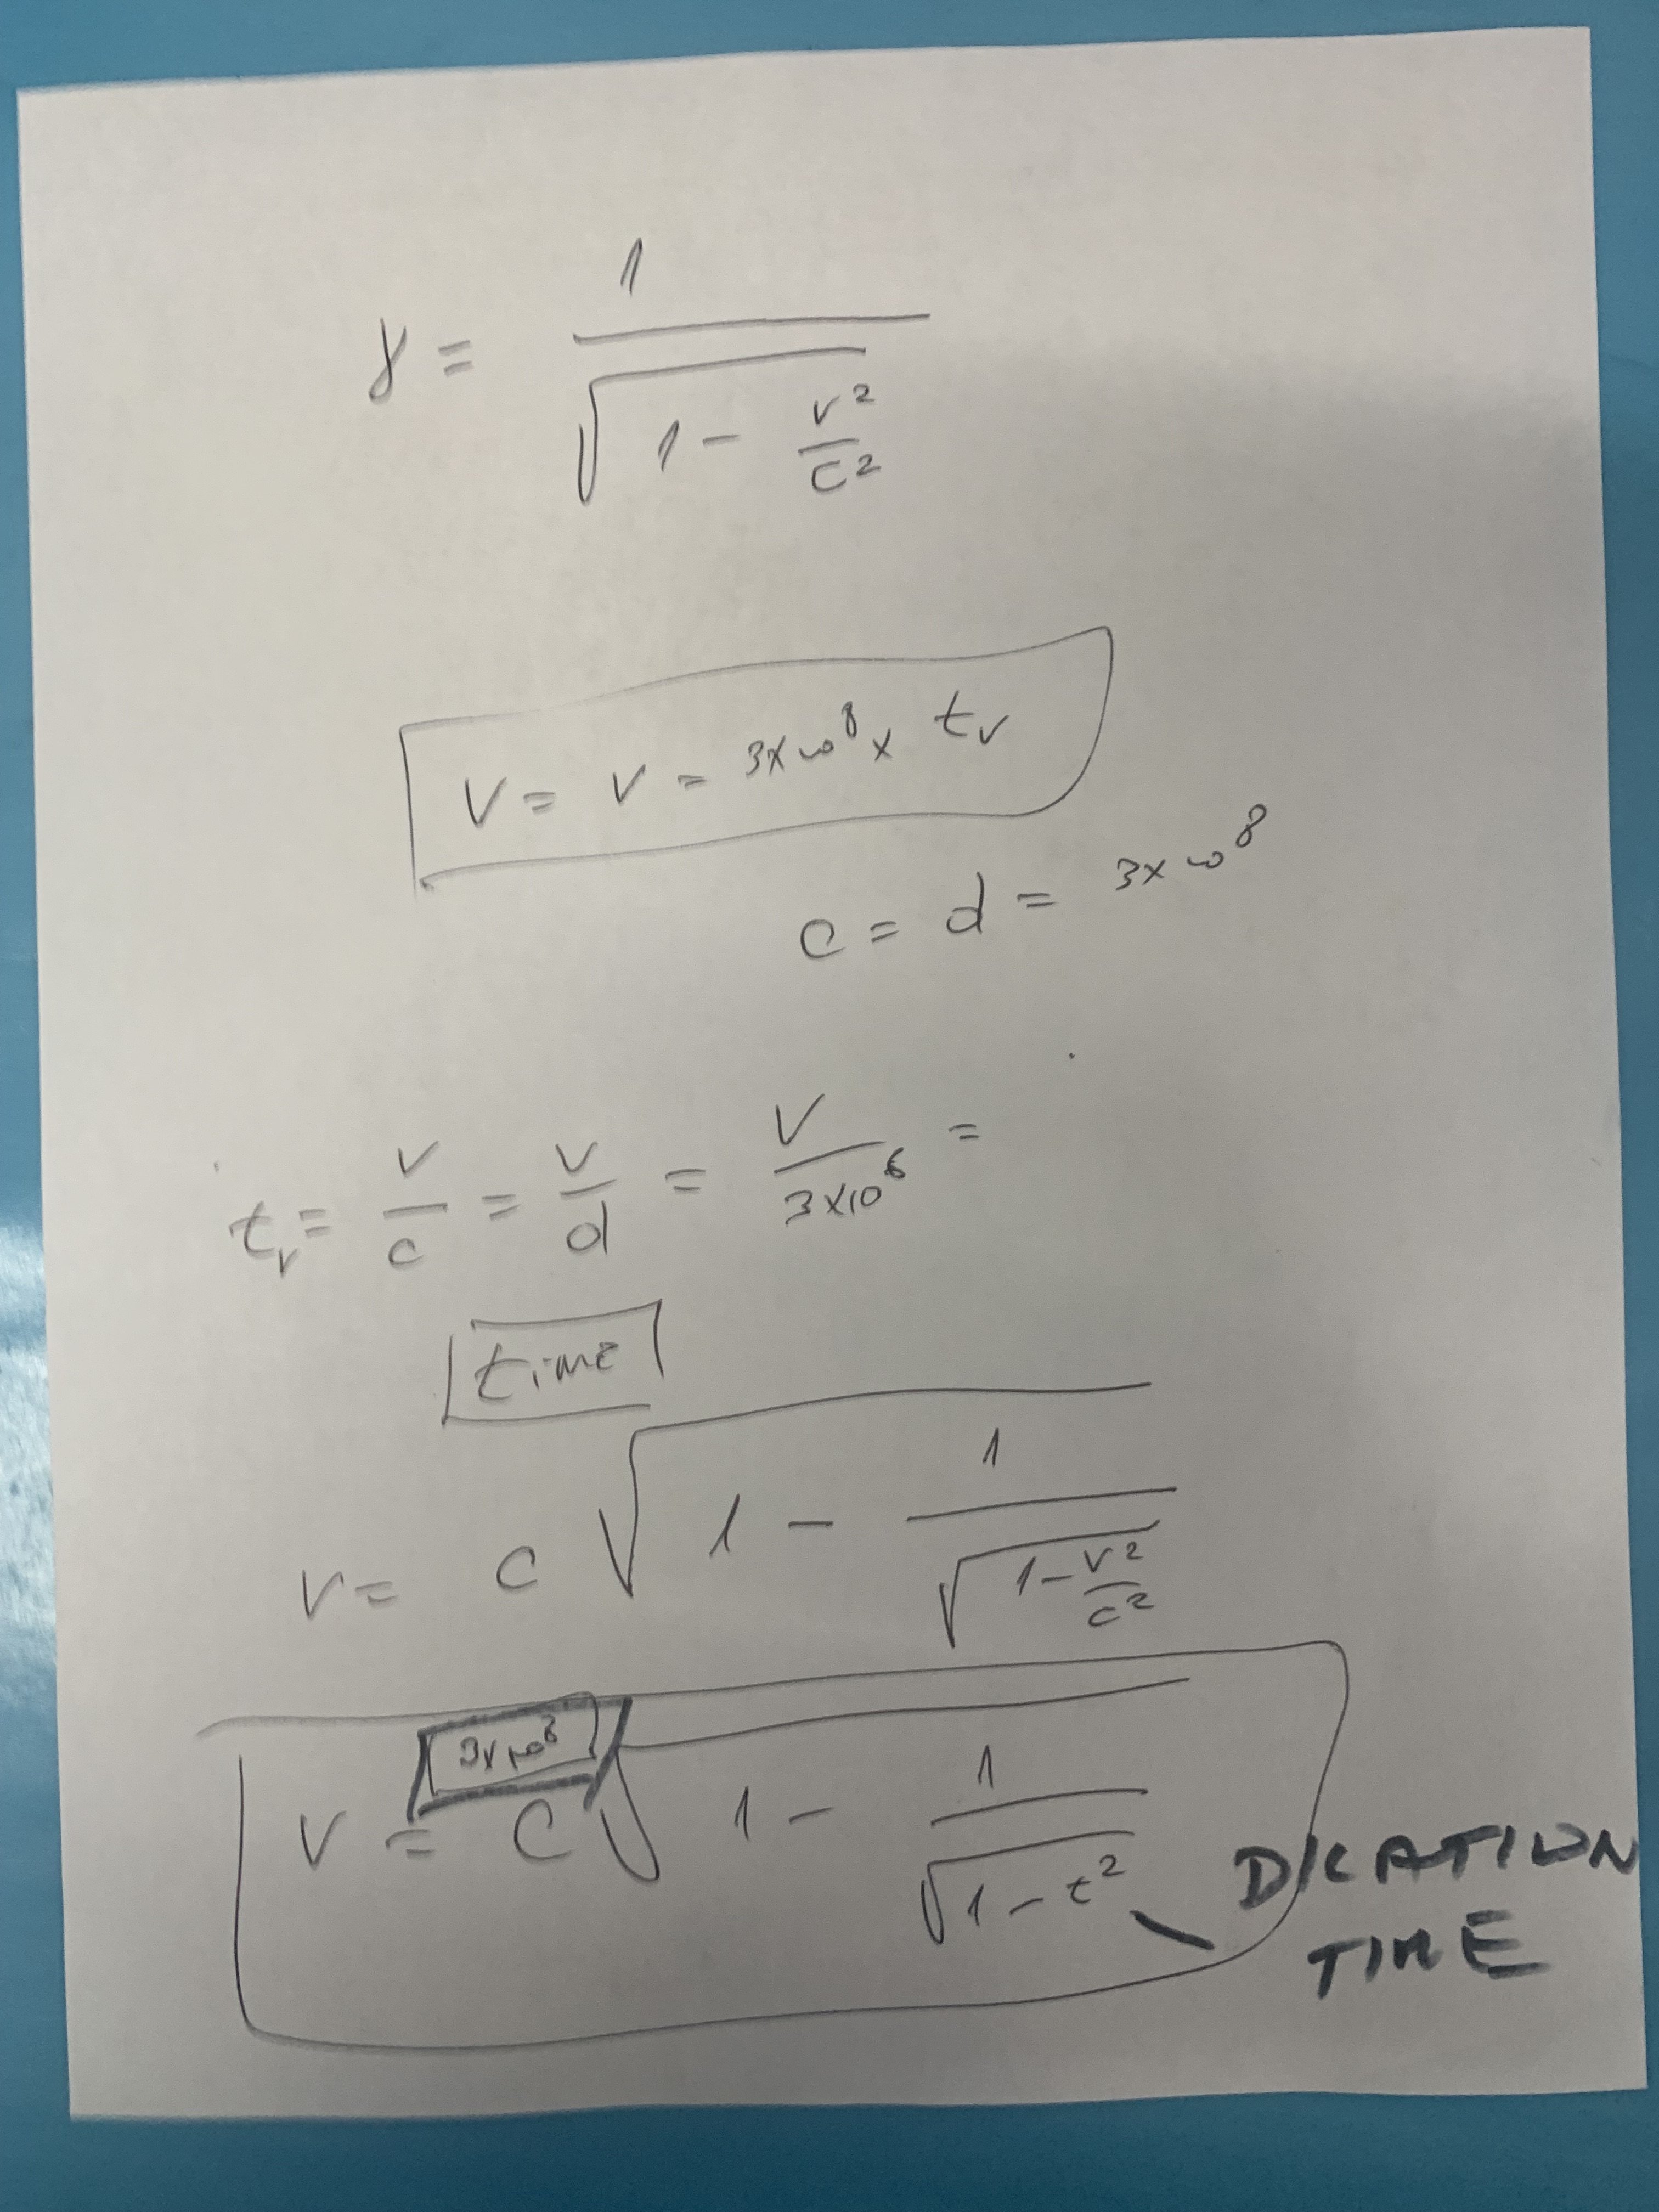 γ = 1 / √(1 - v²/c²)
V = v = 3x10⁸ x tᵥ
c = d = 3x10⁸
tᵥ = v/c = v/d = V/(3x10⁸) =
time
v = c √(1 - 1/√(1 - v²/c²))
3x10⁸
v = c √(1 - 1/√(1 - t²))
DILATION
TIME